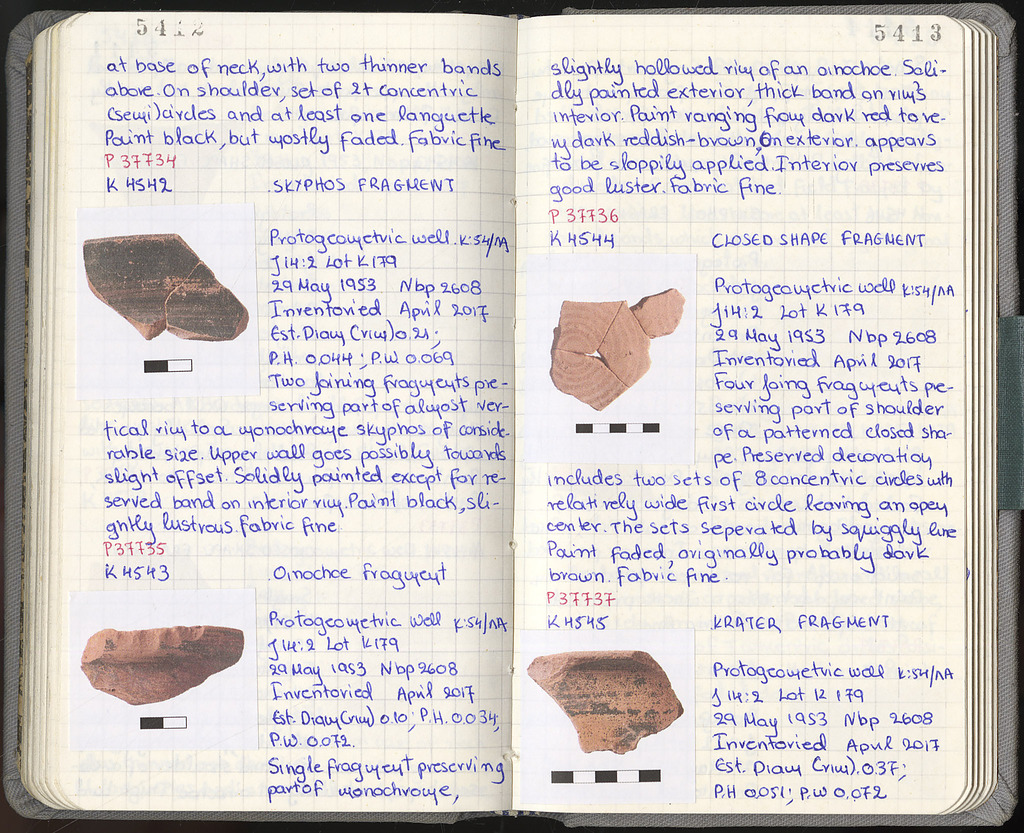 5412
at base of neck, with two thinner bands
above. On shoulder, set of 2+ concentric
(semi)circles and at least one languette
Paint black, but mostly faded. Fabric fine
P 37734
K 4542 SKYPHOS FRAGMENT
Protogeometric well K:54/ΠΑ
J 14:2 Lot K179
29 May 1953 Nbp 2608
Inventoried April 2017
Est. Diam (rim) 0.21;
P.H. 0.044; P.W 0.069
Two joining fragments pre-
serving part of almost ver-
tical rim to a monochrome skyphos of conside-
rable size. Upper wall goes possibly towards
slight offset. Solidly painted except for re-
served band on interior rim. Paint black, sli-
ghtly lustrous. Fabric fine.
P37735
K 4543 Oinochoe fragment
Protogeometric well K:54/ΠΑ
J 14:2 Lot K179
29 May 1953 Nbp 2608
Inventoried April 2017
Est. Diam (rim) 0.10; P.H. 0.034;
P.W. 0.072.
Single fragment preserving
part of monochrome,
5413
slightly hollowed rim of an oinochoe. Soli-
dly painted exterior, thick band on rim's
interior. Paint ranging from dark red to ve-
ry dark reddish-brown, On exterior. appears
to be sloppily applied. Interior preserves
good luster. Fabric fine.
P 37736
K 4544 CLOSED SHAPE FRAGMENT
Protogeometric well K:54/ΠΑ
J14:2 Lot K179
29 May 1953 Nbp 2608
Inventoried April 2017
Four joing fragments pre-
serving part of shoulder
of a patterned closed sha-
pe. Preserved decoration
includes two sets of 8 concentric circles with
relatively wide first circle leaving an open
center. The sets seperated by squiggly line
Paint faded, originally probably dark
brown. Fabric fine.
P 37737
K 4545 KRATER FRAGMENT
Protogeometric well K:54/ΠΑ
J 14:2 Lot K 179
29 May 1953 Nbp 2608
Inventoried April 2017
Est. Diam (rim). 0.37;
P.H 0.051; P.W 0.072